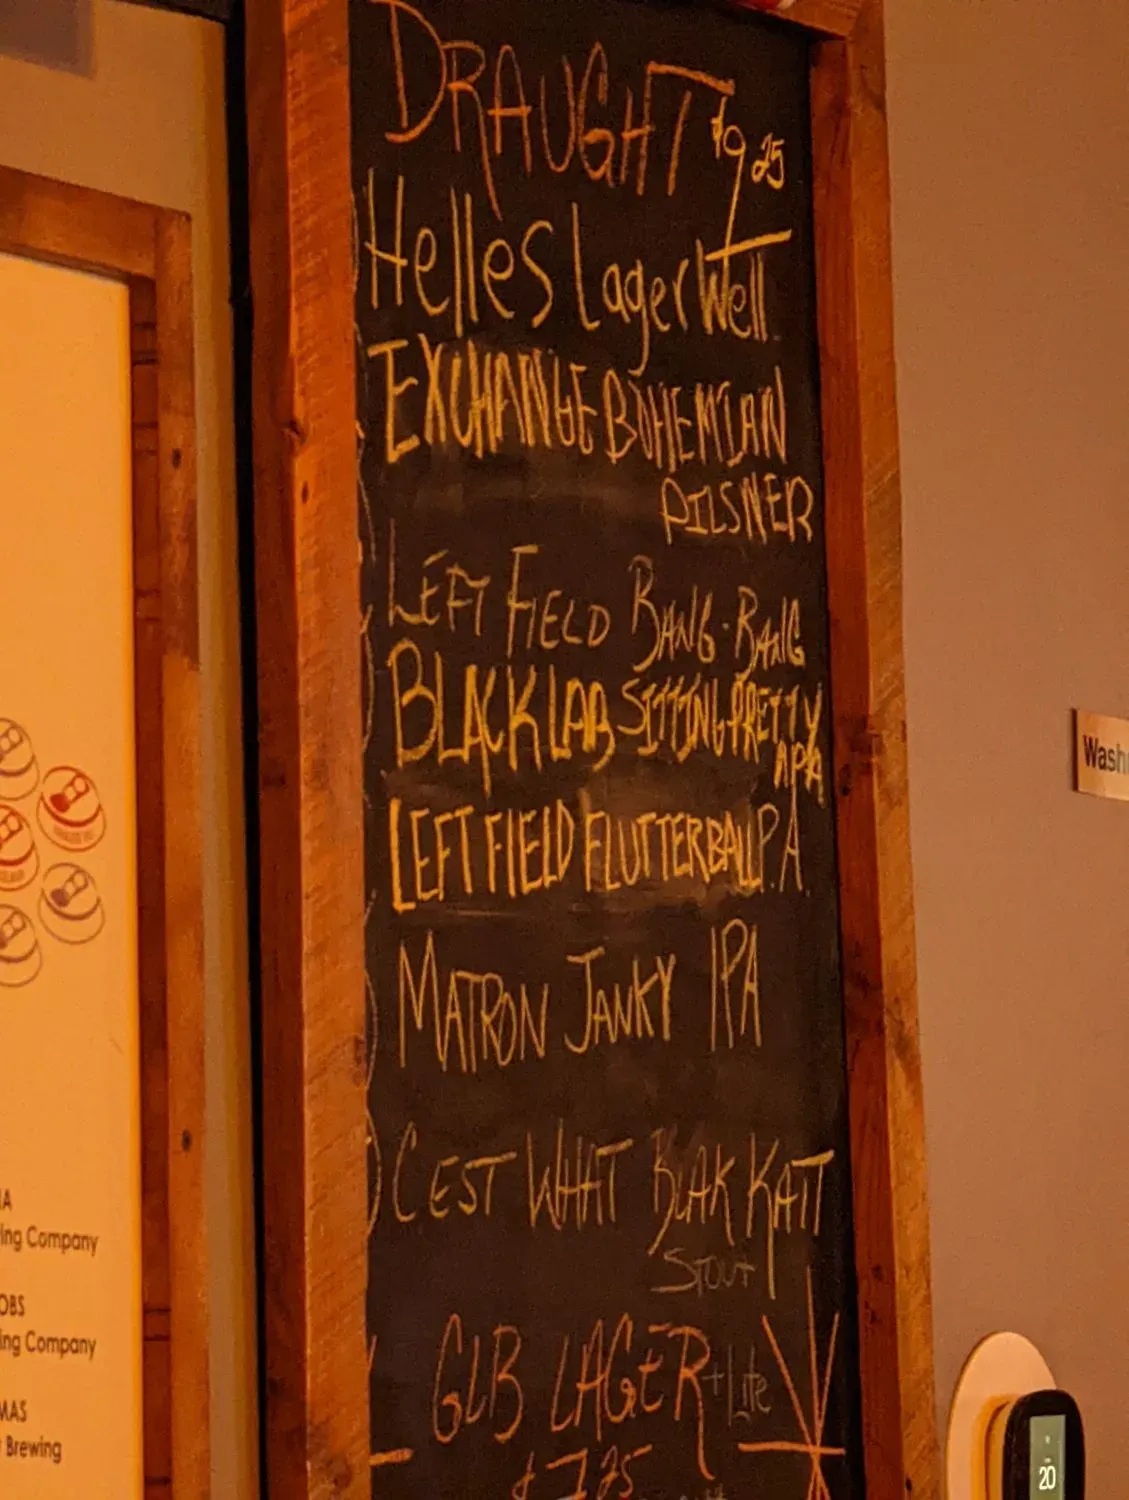 DRAUGHT $9.25
Helles Lager Well
EXCHANGE BOHEMIAN
PILSNER
LEFT FIELD BANG-BANG
BLACK LAB SITTING PRETTY
APA
LEFT FIELD FLUTTERBALL P.A.
MATRON JANKY IPA
CEST WHAT BLAK KATT
STOUT
GLB LAGER + Lite
$7.25
IA
ing Company
OBS
ing Company
MAS
Brewing
Wash
20